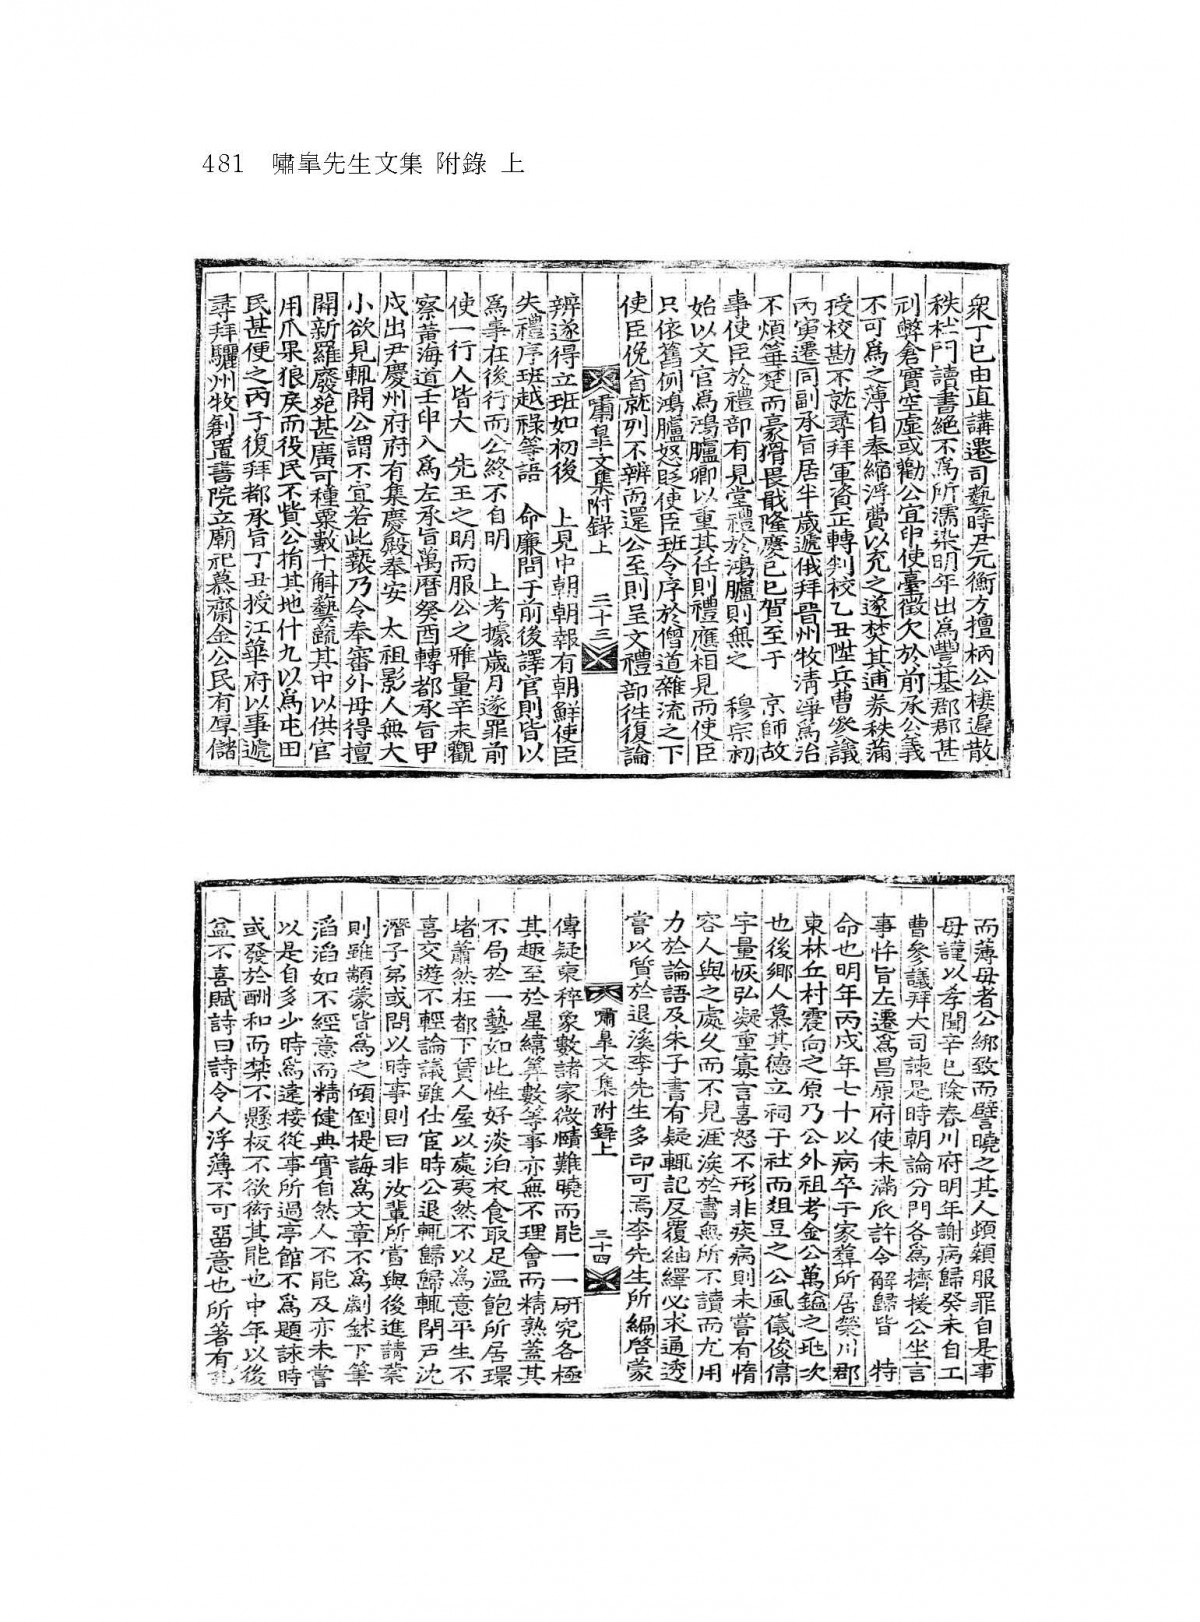 481 嘯皐先生文集 附錄 上
衆丁巳由直講遷司藝時尹元衡方擅柄公棲遲散
秩杜門讀書絕不爲所濡染明年出爲豐基郡郡甚
刓弊倉實空虛或勸公宜印使臺徵欠於前承公義
不可爲之薄自奉縮浮費以充之遂焚其逋券秩滿
授校勘不就尋拜軍資正轉判校乙丑陞兵曹參議
丙寅遷同副承旨居半歲遞俄拜晉州牧淸淨爲治
不煩箠楚而豪猾畏戢隆慶己巳賀至于 京師故
事使臣於禮部有見堂禮於鴻臚則無之 穆宗初
始以文官爲鴻臚卿以重其任則禮應相見而使臣
只依舊例鴻臚怒貶使臣班令序於僧道雜流之下
使臣俛首就列不辨而還公至則呈文禮部往復論
嘯皐文集附錄上 三十三
辨遂得立班如初後 上見中朝朝報有朝鮮使臣
失禮序班越祿等語 命廉問于前後譯官則皆以
爲事在後行而公終不自明 上考據歲月遂罪前
使一行人皆大 先王之明而服公之雅量辛未觀
察黃海道壬申入爲左承旨萬曆癸酉轉都承旨甲
戌出尹慶州府府有集慶殿奉安 太祖影人無大
小欲見輒開公謂不宜若此褻乃令奉審外毋得擅
開新羅廢苑甚廣可種粟數十斛藝蔬其中以供官
用爪果狼戾而役民不貲公捐其地什九以爲屯田
民甚便之丙子復拜都承旨丁丑授江華府以事遞
尋拜驪州牧創置書院立廟祀慕齋金公民有厚儲
而薄母者公綁致而譬曉之其人頫顙服罪自是事
母謹以孝聞辛巳除春川府明年謝病歸癸未自工
曹參議拜大司諫是時朝論分門各爲擠援公坐言
事忤旨左遷爲昌原府使未滿瓜許令解歸皆 特
命也明年丙戌年七十以病卒于家葬所居榮川郡
東林丘村震向之原乃公外祖考金公萬鎰之兆次
也後鄉人慕其德立祠于社而俎豆之公風儀俊偉
宇量恢弘凝重寡言喜怒不形非疾病則未嘗有惰
容人與之處久而不見涯涘於書無所不讀而尤用
力於論語及朱子書有疑輒記反覆紬繹必求通透
嘗以質於退溪李先生多印可焉李先生所編啓蒙
嘯皐文集附錄上 三十四
傳疑東稡象數諸家微賾難曉而能一一硏究各極
其趣至於星緯算數等事亦無不理會而精熟蓋其
不局於一藝如此性好淡泊衣食取足溫飽所居環
堵蕭然在都下賃人屋以處夷然不以爲意平生不
喜交遊不輕論議雖仕宦時公退輒歸歸輒閉戶沈
潛子弟或問以時事則曰非汝輩所當與後進請業
則雖顓蒙皆爲之傾倒提誨爲文章不爲劌鉥下筆
滔滔如不經意而精健典實自然人不能及亦未嘗
以是自多少時爲遠接從事所過亭館不爲題詠時
或發於酬和而禁不懸板不欲衒其能也中年以後
益不喜賦詩曰詩令人浮薄不可留意也所著有孔